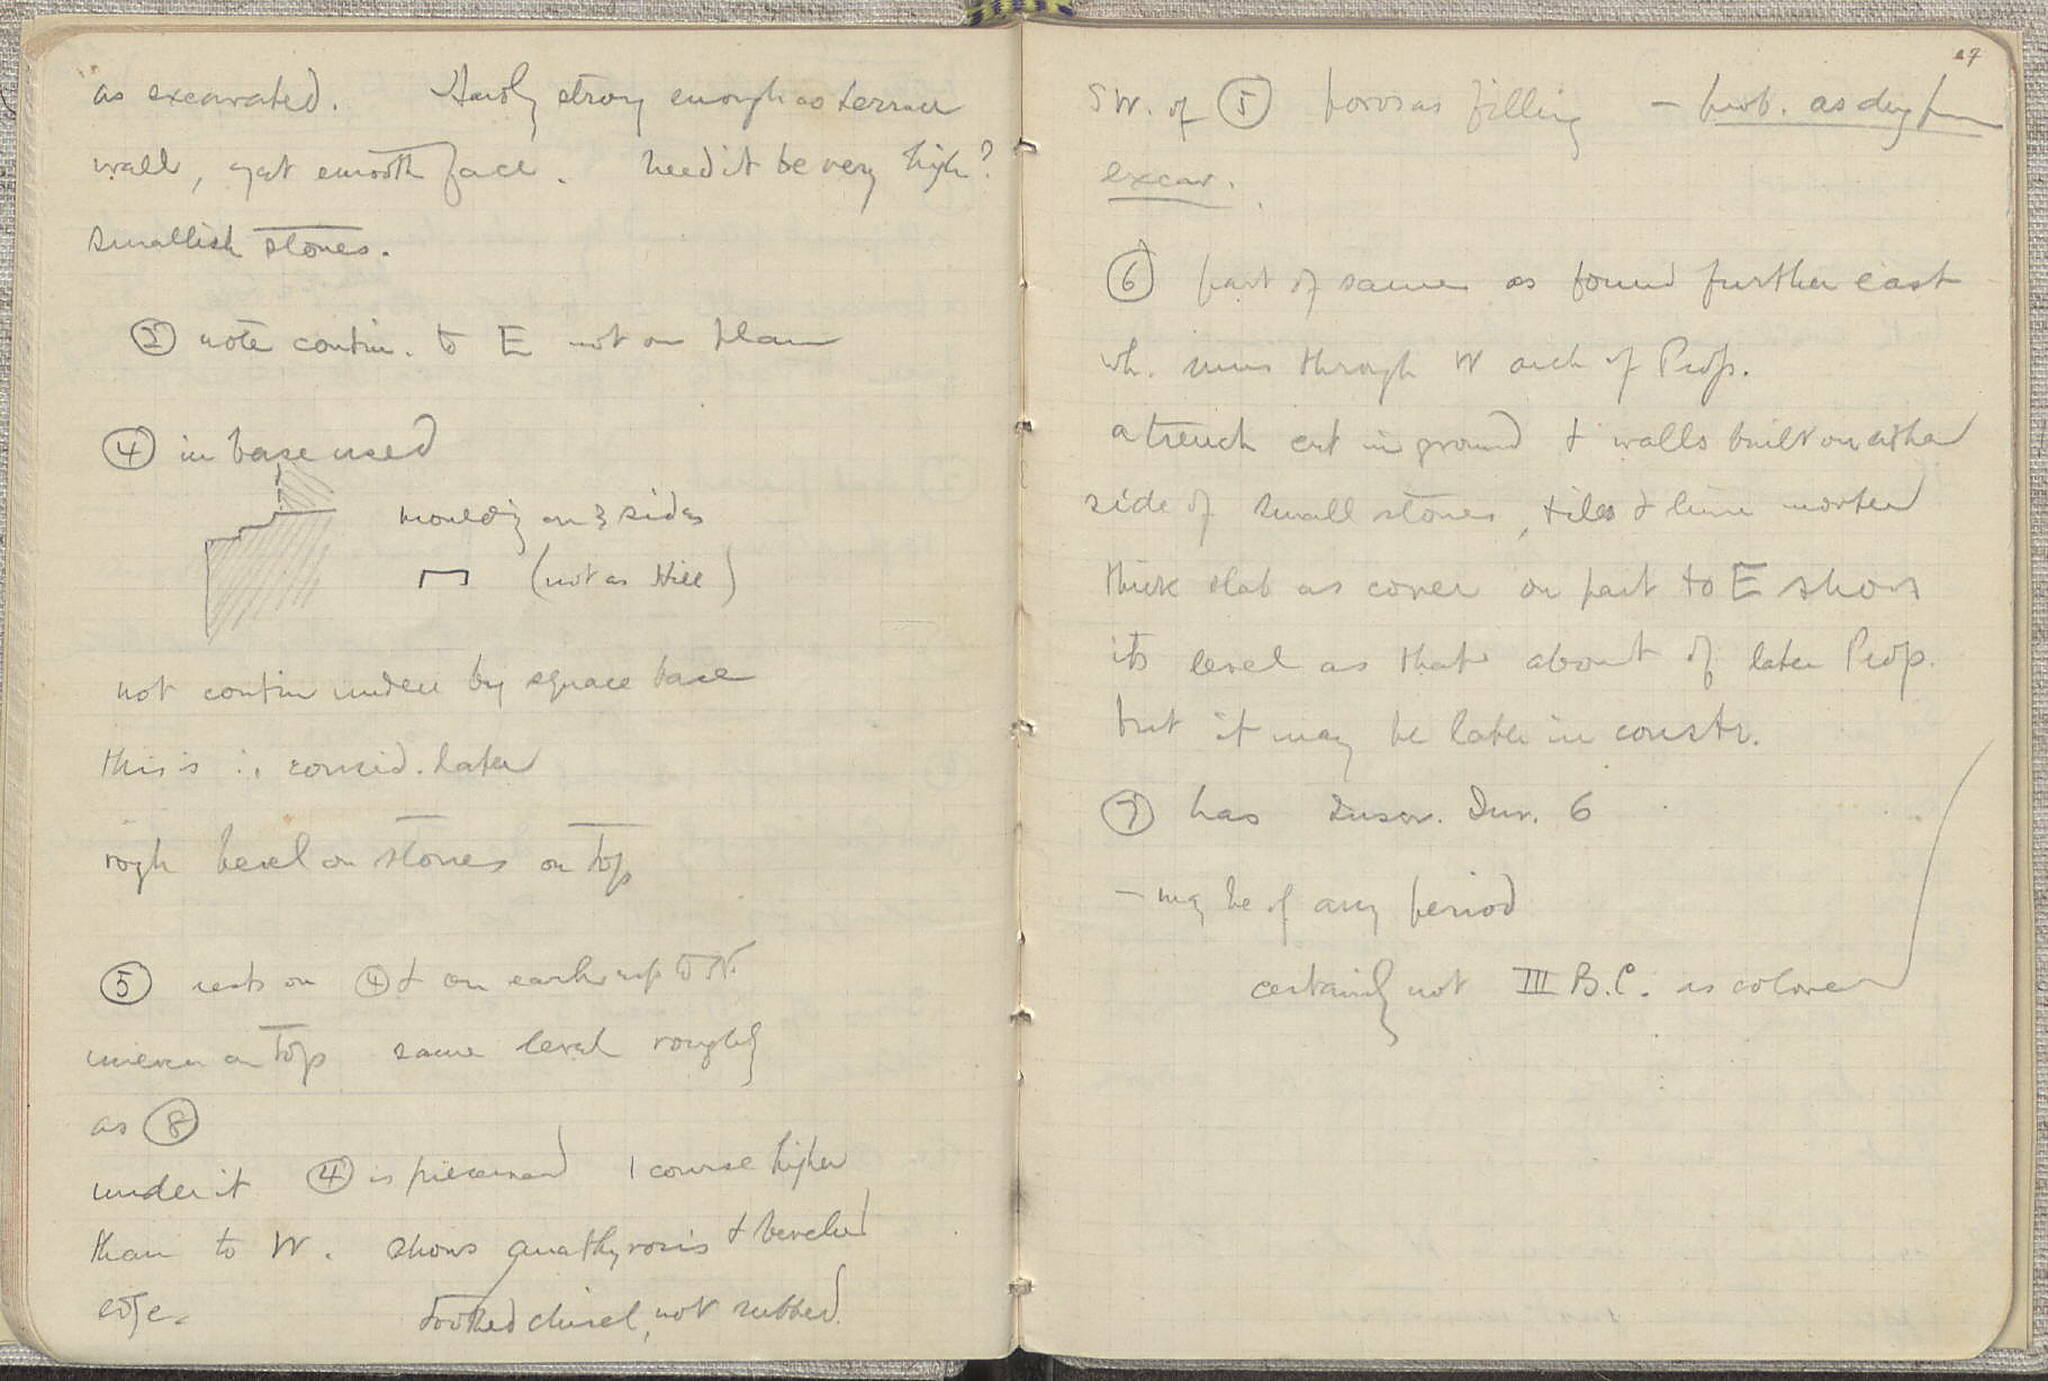 as excavated. Hardly strong enough as terrace
wall, yet smooth face. Need it be very high?
Smallish stones.
② note contin. to E not on plan
④ in base used
moulding on 3 sides
(not as Hill)
not contin under by square base
this is ∴ consid. later
rough bevel on stones on top
⑤ rests on ④ & on earth up to N.
uneven on top same level roughly
as ⑧
under it ④ is preserved 1 course higher
than to W. shows anathyrosis & bevelled
edge.
toothed chisel, not rubbed.
27
SW. of ⑤ poros as filling – prob. as dug from
excav.
⑥ part of same as found further east
wh. runs through W arch of Prop.
a trench cut in ground & walls built on either
side of small stones, tiles & lime mortar
thick slab as cover on part to E shows
its level as that about of later Prop.
but it may be later in constr.
⑦ has Inscr. Inv. 6
– may be of any period
certainly not III B.C. as